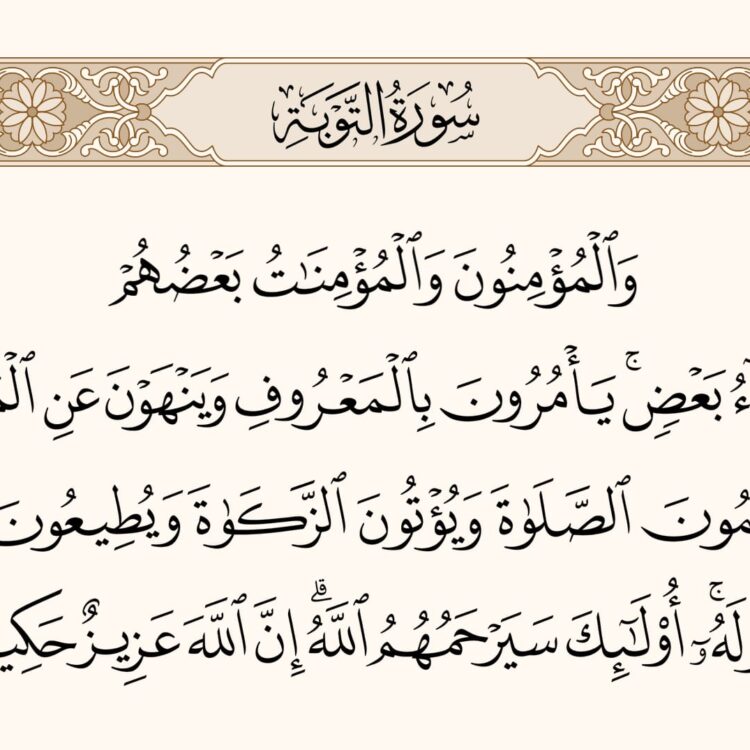 سُورَةُ التَّوْبَةِ
وَٱلْمُؤْمِنُونَ وَٱلْمُؤْمِنَـٰتُ بَعْضُهُمْ
بَعْضٍۚ يَأْمُرُونَ بِٱلْمَعْرُوفِ وَيَنْهَوْنَ عَنِ
ٱلصَّلَوٰةَ وَيُؤْتُونَ ٱلزَّكَوٰةَ وَيُطِيعُونَ
أُو۟لَـٰٓئِكَ سَيَرْحَمُهُمُ ٱللَّهُۗ إِنَّ ٱللَّهَ عَزِيزٌ